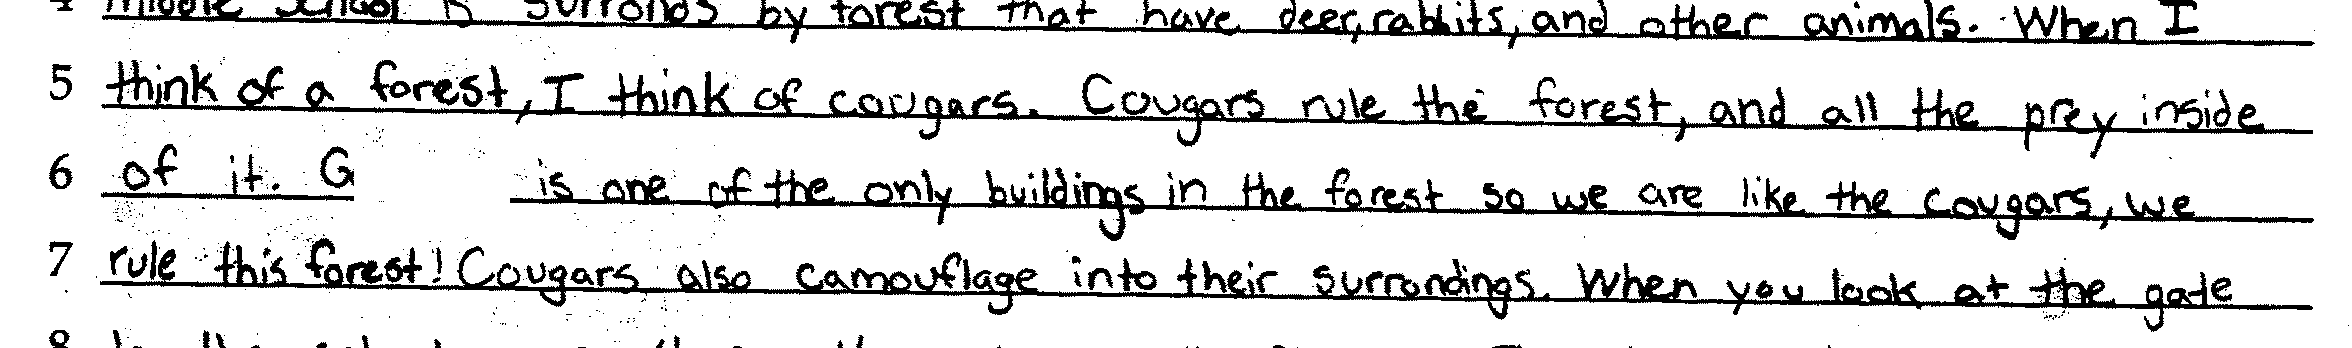 4 middle school is surronds by forest that have deer, rabbits, and other animals. When I
5 think of a forest, I think of cougars. Cougars rule the forest, and all the prey inside
6 of it. G is one of the only buildings in the forest so we are like the cougars, we
7 rule this forest! Cougars also camouflage into their surrondings. When you look at the gate
8